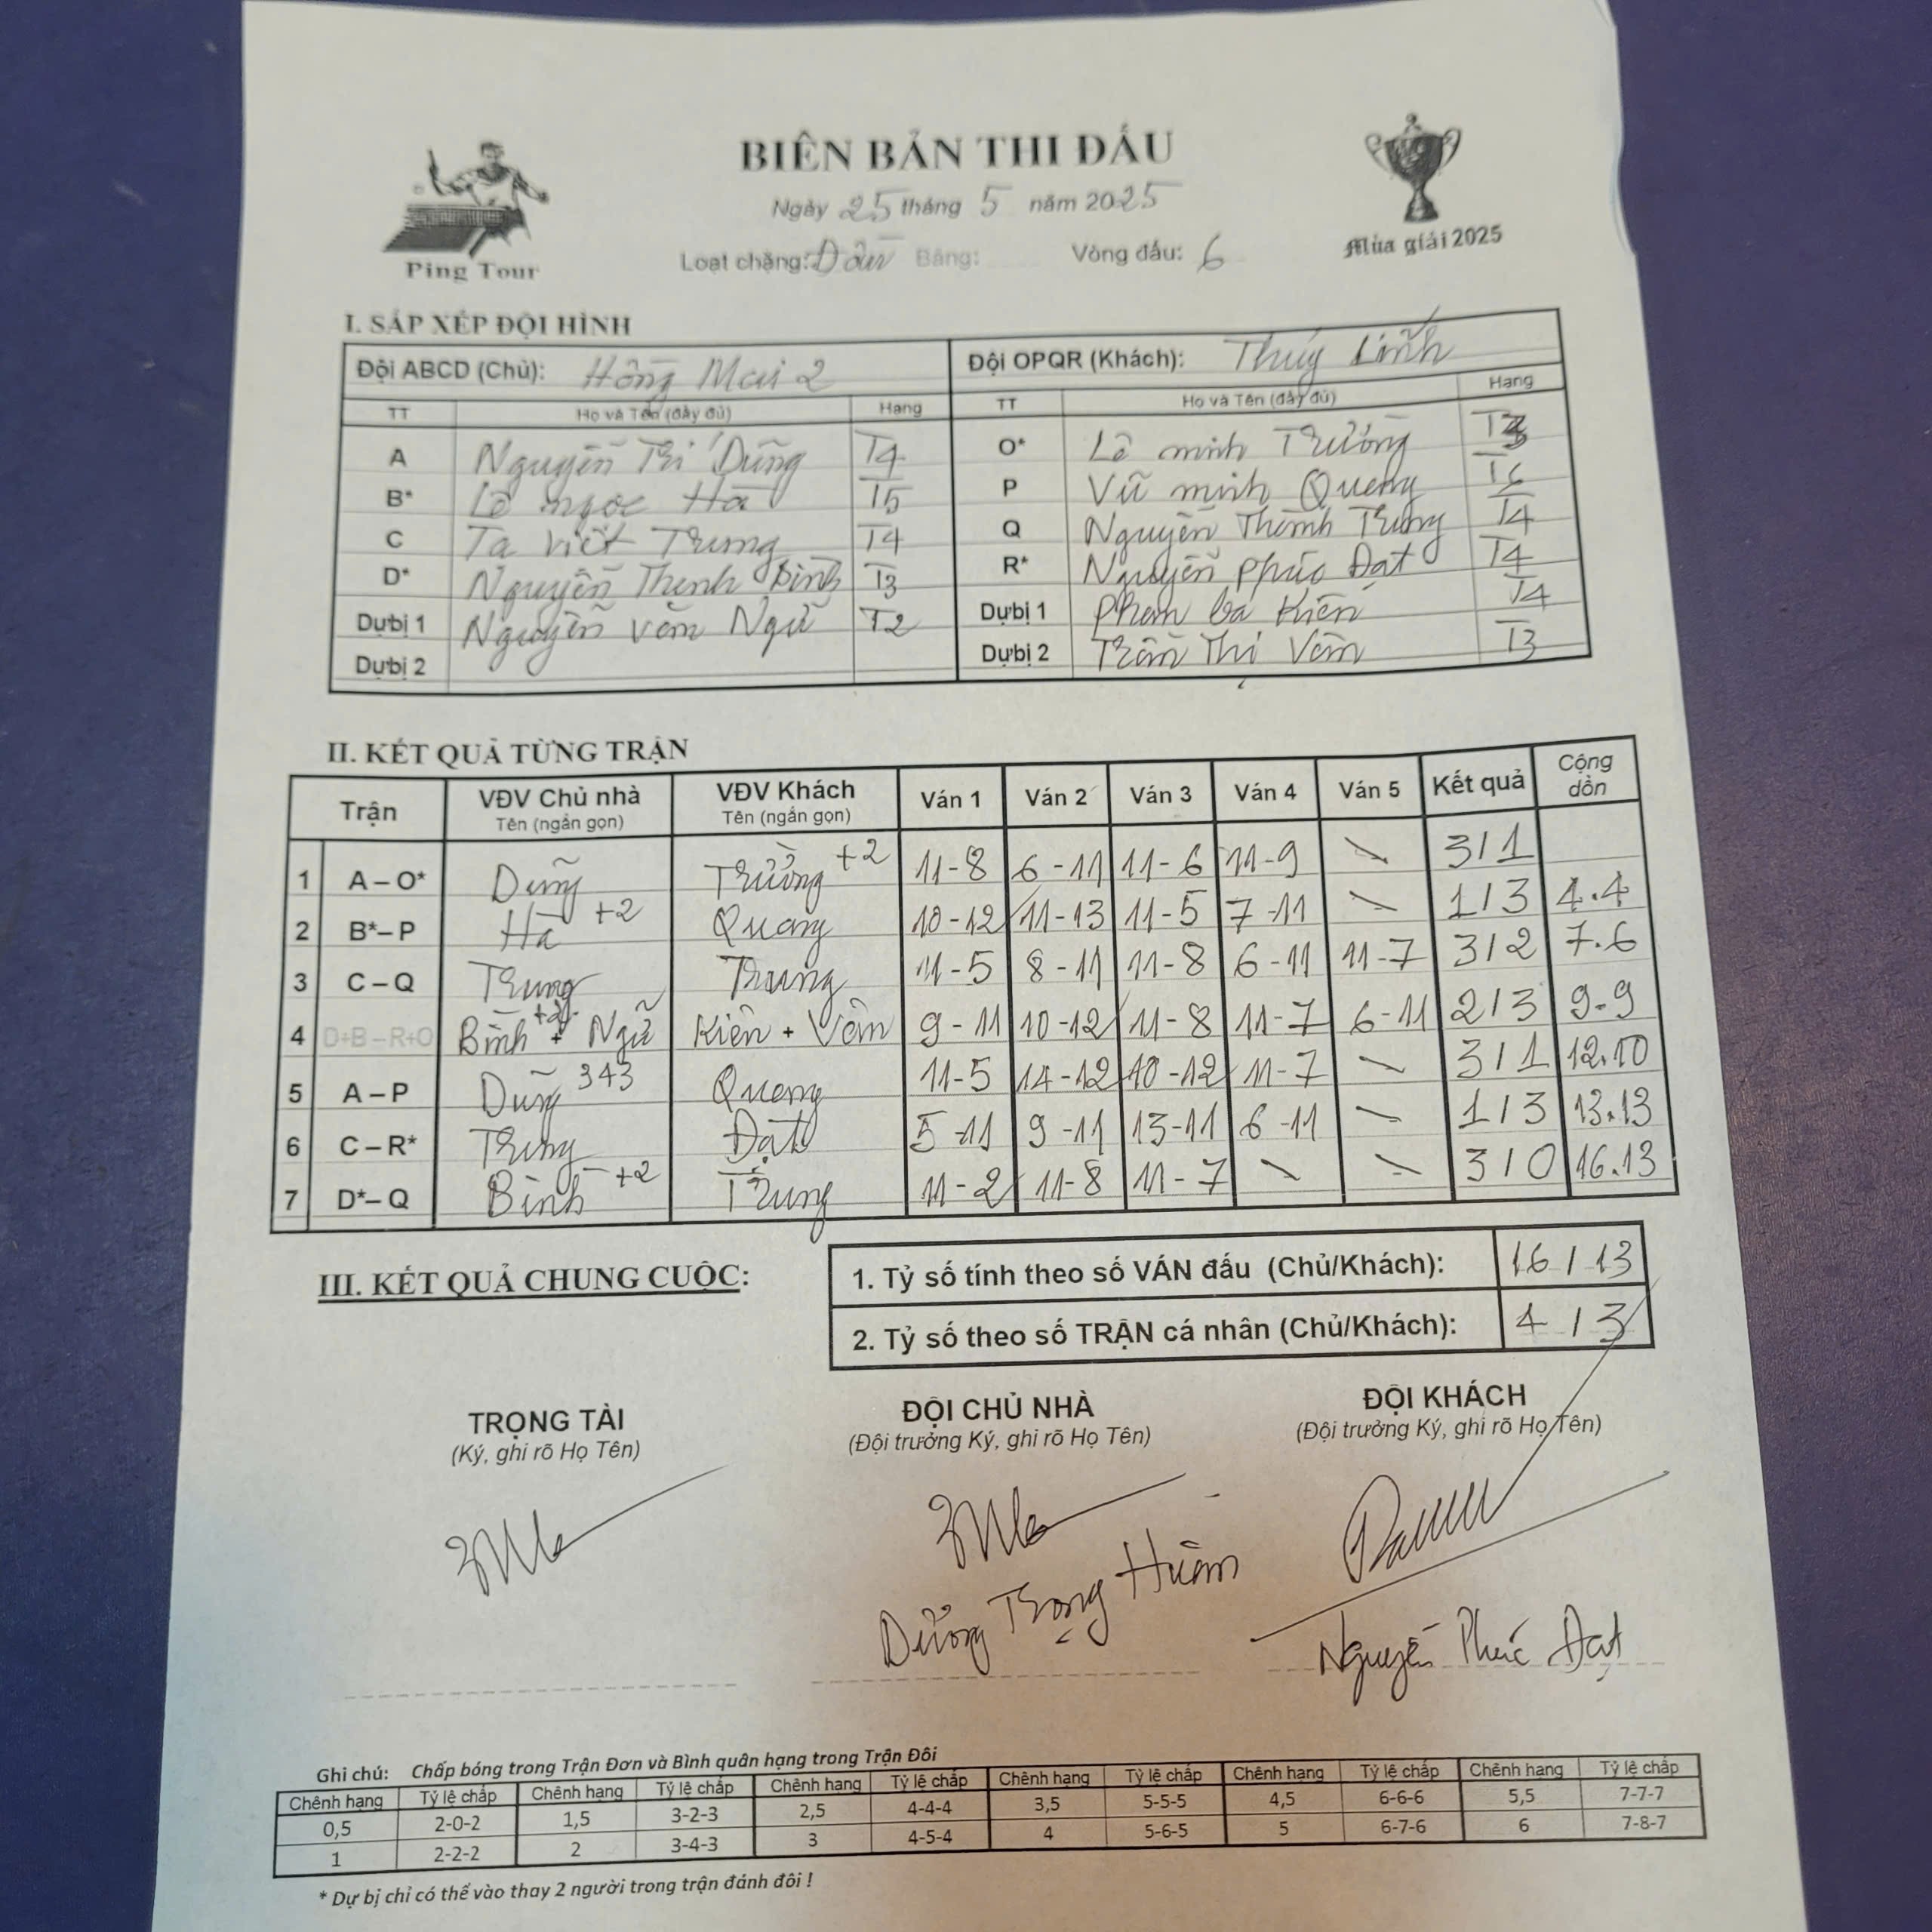 BIÊN BẢN THI ĐẤU
Ngày 25 tháng 5 năm 2025
Loạt chặng: Đôi Bảng: Vòng đấu: 6
Ping Tour
Mùa giải 2025
I. SẮP XẾP ĐỘI HÌNH
Đội ABCD (Chủ): Hồng Mai 2 Đội OPQR (Khách): Thúy Linh
TT Họ và Tên (đầy đủ) Hạng TT Họ và Tên (đầy đủ) Hạng
A Nguyễn Trí Dũng T4 O* Lê minh Trường T3
B* Lê ngọc Hà T5 P Vũ minh Quang T6
C Tạ Viết Trung T4 Q Nguyễn Thành Trung T4
D* Nguyễn Thanh Bình T3 R* Nguyễn Phúc Đạt T4
Dự bị 1 Nguyễn Văn Ngữ T2 Dự bị 1 Phạm bá Kiên T4
Dự bị 2 Dự bị 2 Trần Thị Vân T3
II. KẾT QUẢ TỪNG TRẬN
Trận VĐV Chủ nhà Tên (ngắn gọn) VĐV Khách Tên (ngắn gọn) Ván 1 Ván 2 Ván 3 Ván 4 Ván 5 Kết quả Cộng dồn
1 A – O* Dũng Trường +2 11-8 6-11 11-6 11-9 \ 3/1
2 B* – P Hà +2 Quang 10-12 11-13 11-5 7-11 \ 1/3 4.4
3 C – Q Trung Trung 11-5 8-11 11-8 6-11 11-7 3/2 7.6
4 D+B – R+O Bình + Ngữ Kiên + Vân 9-11 10-12 11-8 11-7 6-11 2/3 9-9
5 A – P Dũng 343 Quang 11-5 14-12 10-12 11-7 \ 3/1 12.10
6 C – R* Trung Đạt 5-11 9-11 13-11 6-11 \ 1/3 13.13
7 D* – Q Bình +2 Trung 11-2 11-8 11-7 \ \ 3/0 16.13
III. KẾT QUẢ CHUNG CUỘC:
1. Tỷ số tính theo số VÁN đấu (Chủ/Khách): 16 / 13
2. Tỷ số theo số TRẬN cá nhân (Chủ/Khách): 4 / 3
TRỌNG TÀI ĐỘI CHỦ NHÀ ĐỘI KHÁCH
(Ký, ghi rõ Họ Tên) (Đội trưởng Ký, ghi rõ Họ Tên) (Đội trưởng Ký, ghi rõ Họ Tên)
Dương Trọng Huân Nguyễn Phúc Đạt
Ghi chú: Chấp bóng trong Trận Đơn và Bình quân hạng trong Trận Đôi
Chênh hạng Tỷ lệ chấp Chênh hạng Tỷ lệ chấp Chênh hạng Tỷ lệ chấp Chênh hạng Tỷ lệ chấp Chênh hạng Tỷ lệ chấp Chênh hạng Tỷ lệ chấp
0,5 2-0-2 1,5 3-2-3 2,5 4-4-4 3,5 5-5-5 4,5 6-6-6 5,5 7-7-7
1 2-2-2 2 3-4-3 3 4-5-4 4 5-6-5 5 6-7-6 6 7-8-7
* Dự bị chỉ có thể vào thay 2 người trong trận đánh đôi !